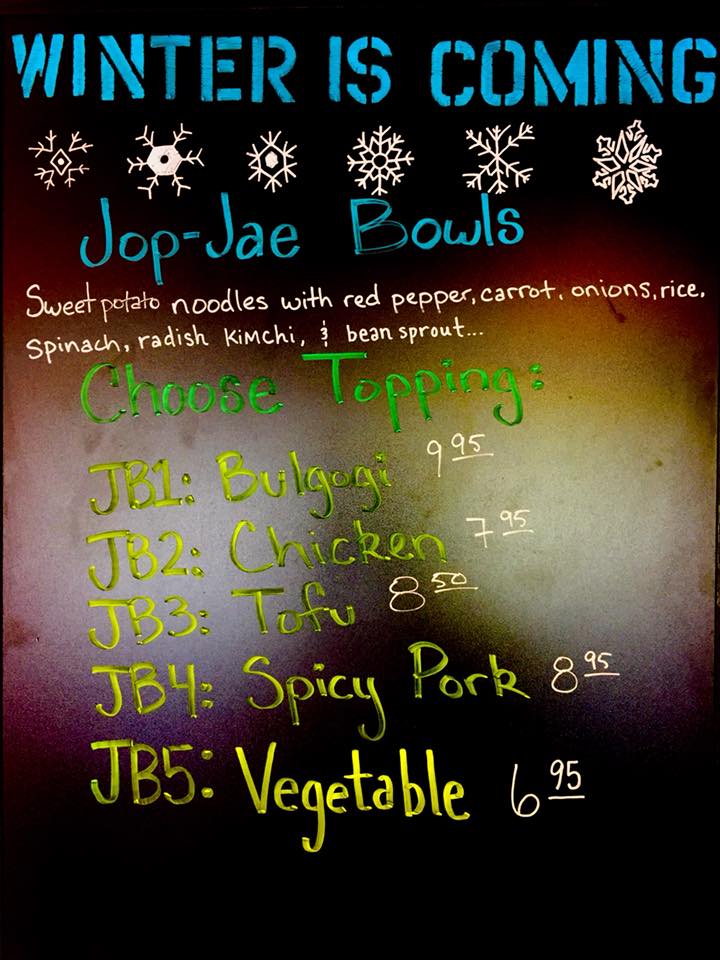 WINTER IS COMING
Jop-Jae Bowls
Sweet potato noodles with red pepper, carrot, onions, rice,
Spinach, radish Kimchi, & bean sprout...
Choose Topping:
JB1: Bulgogi 9 95
JB2: Chicken 7 95
JB3: Tofu 8 50
JB4: Spicy Pork 8 95
JB5: Vegetable 6 95